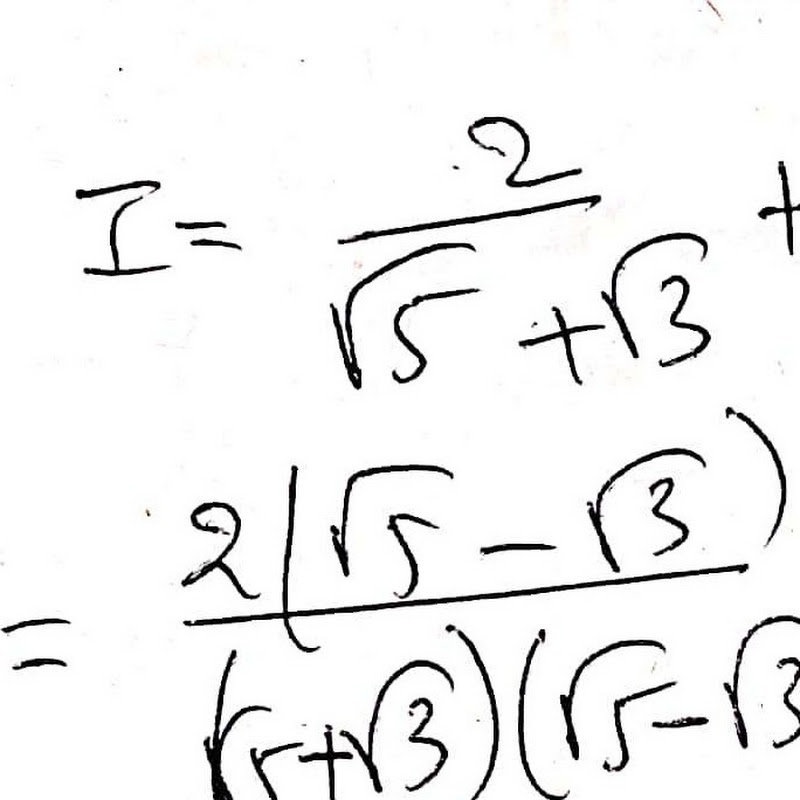 I = 2/(√5 + √3) +
= 2(√5 - √3)/((√5 + √3)(√5 - √3